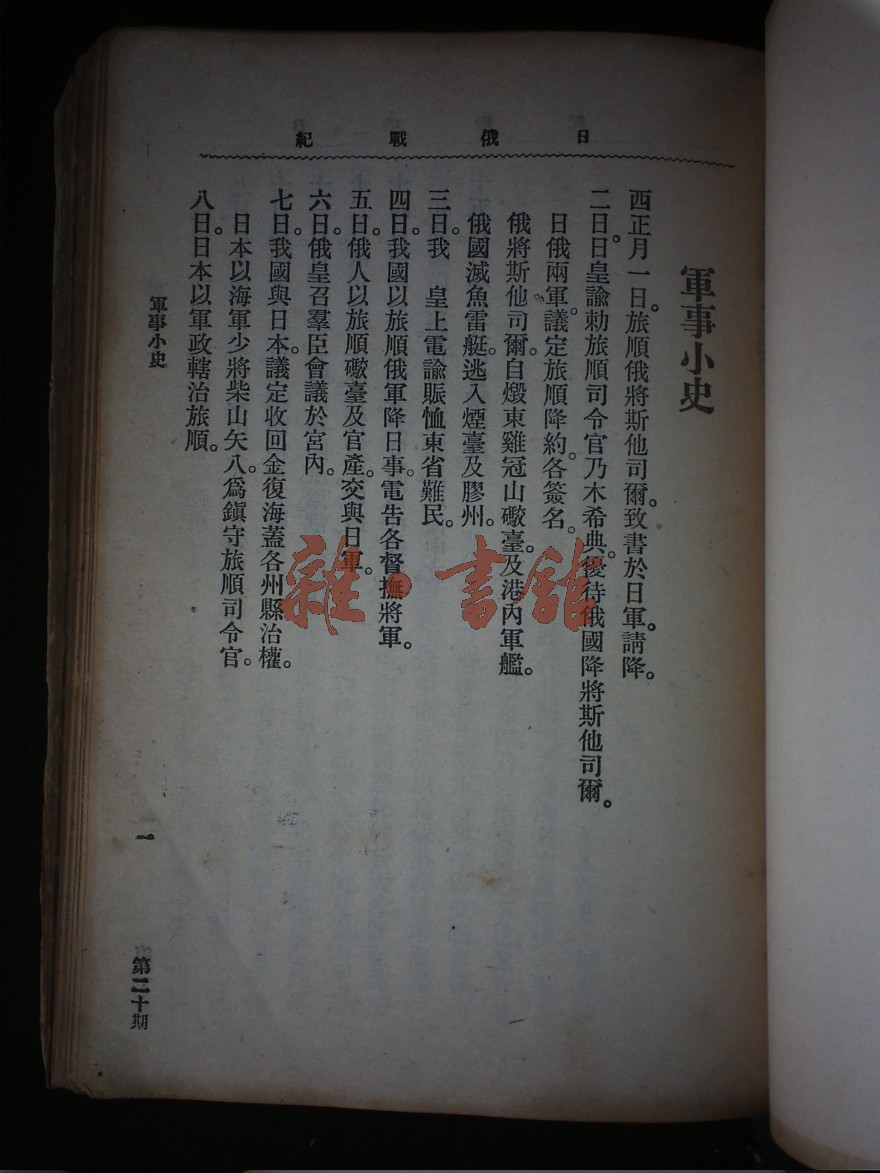 日俄戰紀
軍事小史
西正月一日。旅順俄將斯他司爾。致書於日軍。請降。
二日。日皇諭勅旅順司令官乃木希典。優待俄國降將斯他司爾。
日俄兩軍。議定旅順降約。各簽名。
俄將斯他司爾。自燬東雞冠山礮臺。及港內軍艦。
俄國滅魚雷艇。逃入煙臺及膠州。
三日。我　皇上電諭賑恤東省難民。
四日。我國以旅順俄軍降日事。電告各督撫將軍。
五日。俄人以旅順礮臺及官產。交與日軍。
六日。俄皇召羣臣會議於宮內。
七日。我國與日本。議定收回金復海蓋各州縣治權。
日本以海軍少將柴山矢八。爲鎮守旅順司令官。
八日。日本以軍政轄治旅順。
軍事小史
一
第二十期
雜·書館